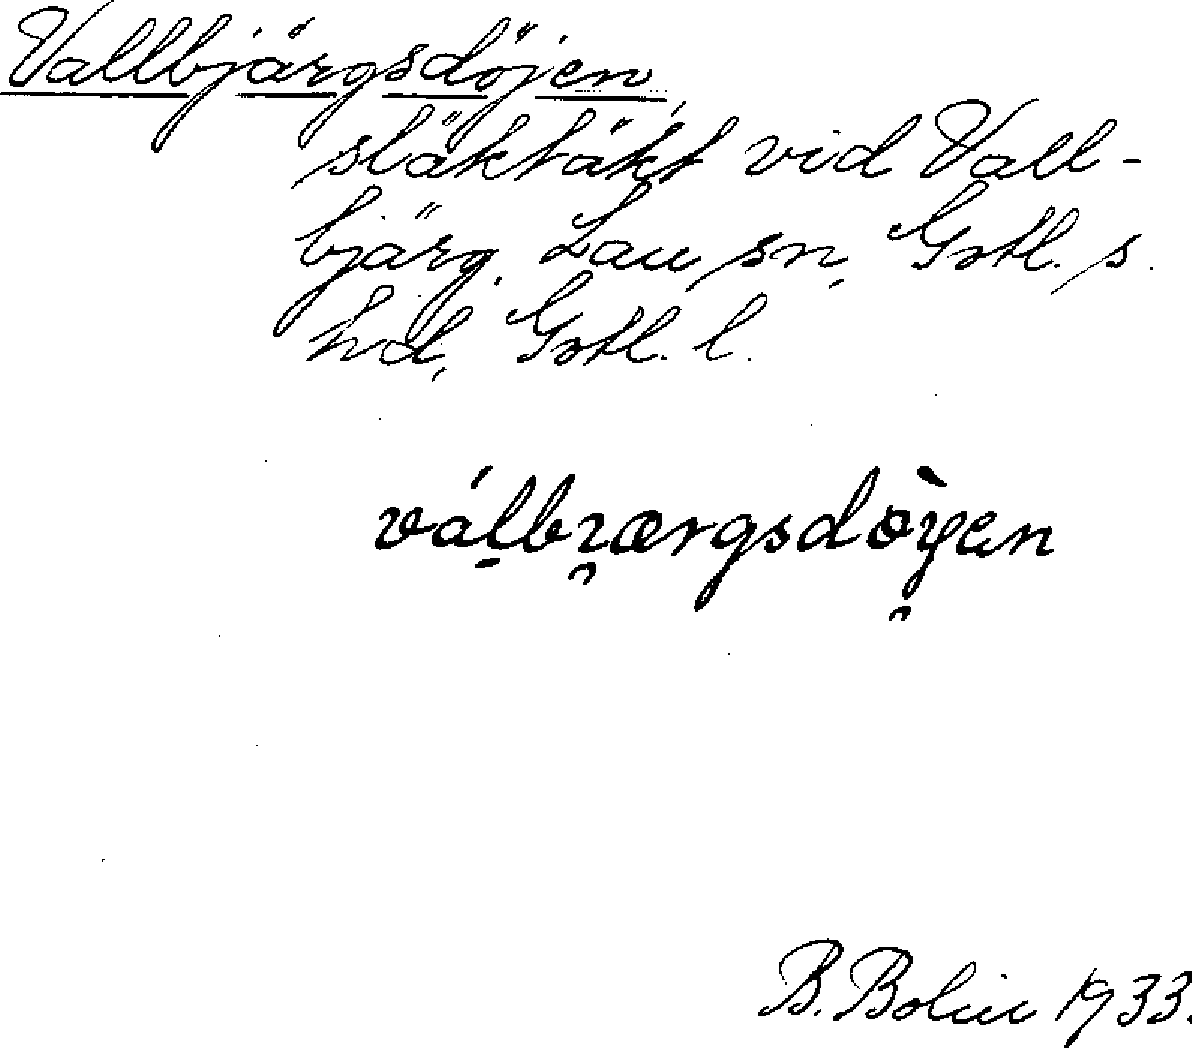 Vallbjärgsdöjen,
släktäkt vid Vall-
bjärg, Lau sn, Gotl. s.
hd, Gotl. l.
válbɿærgsdòyen
B. Bolin 1933.